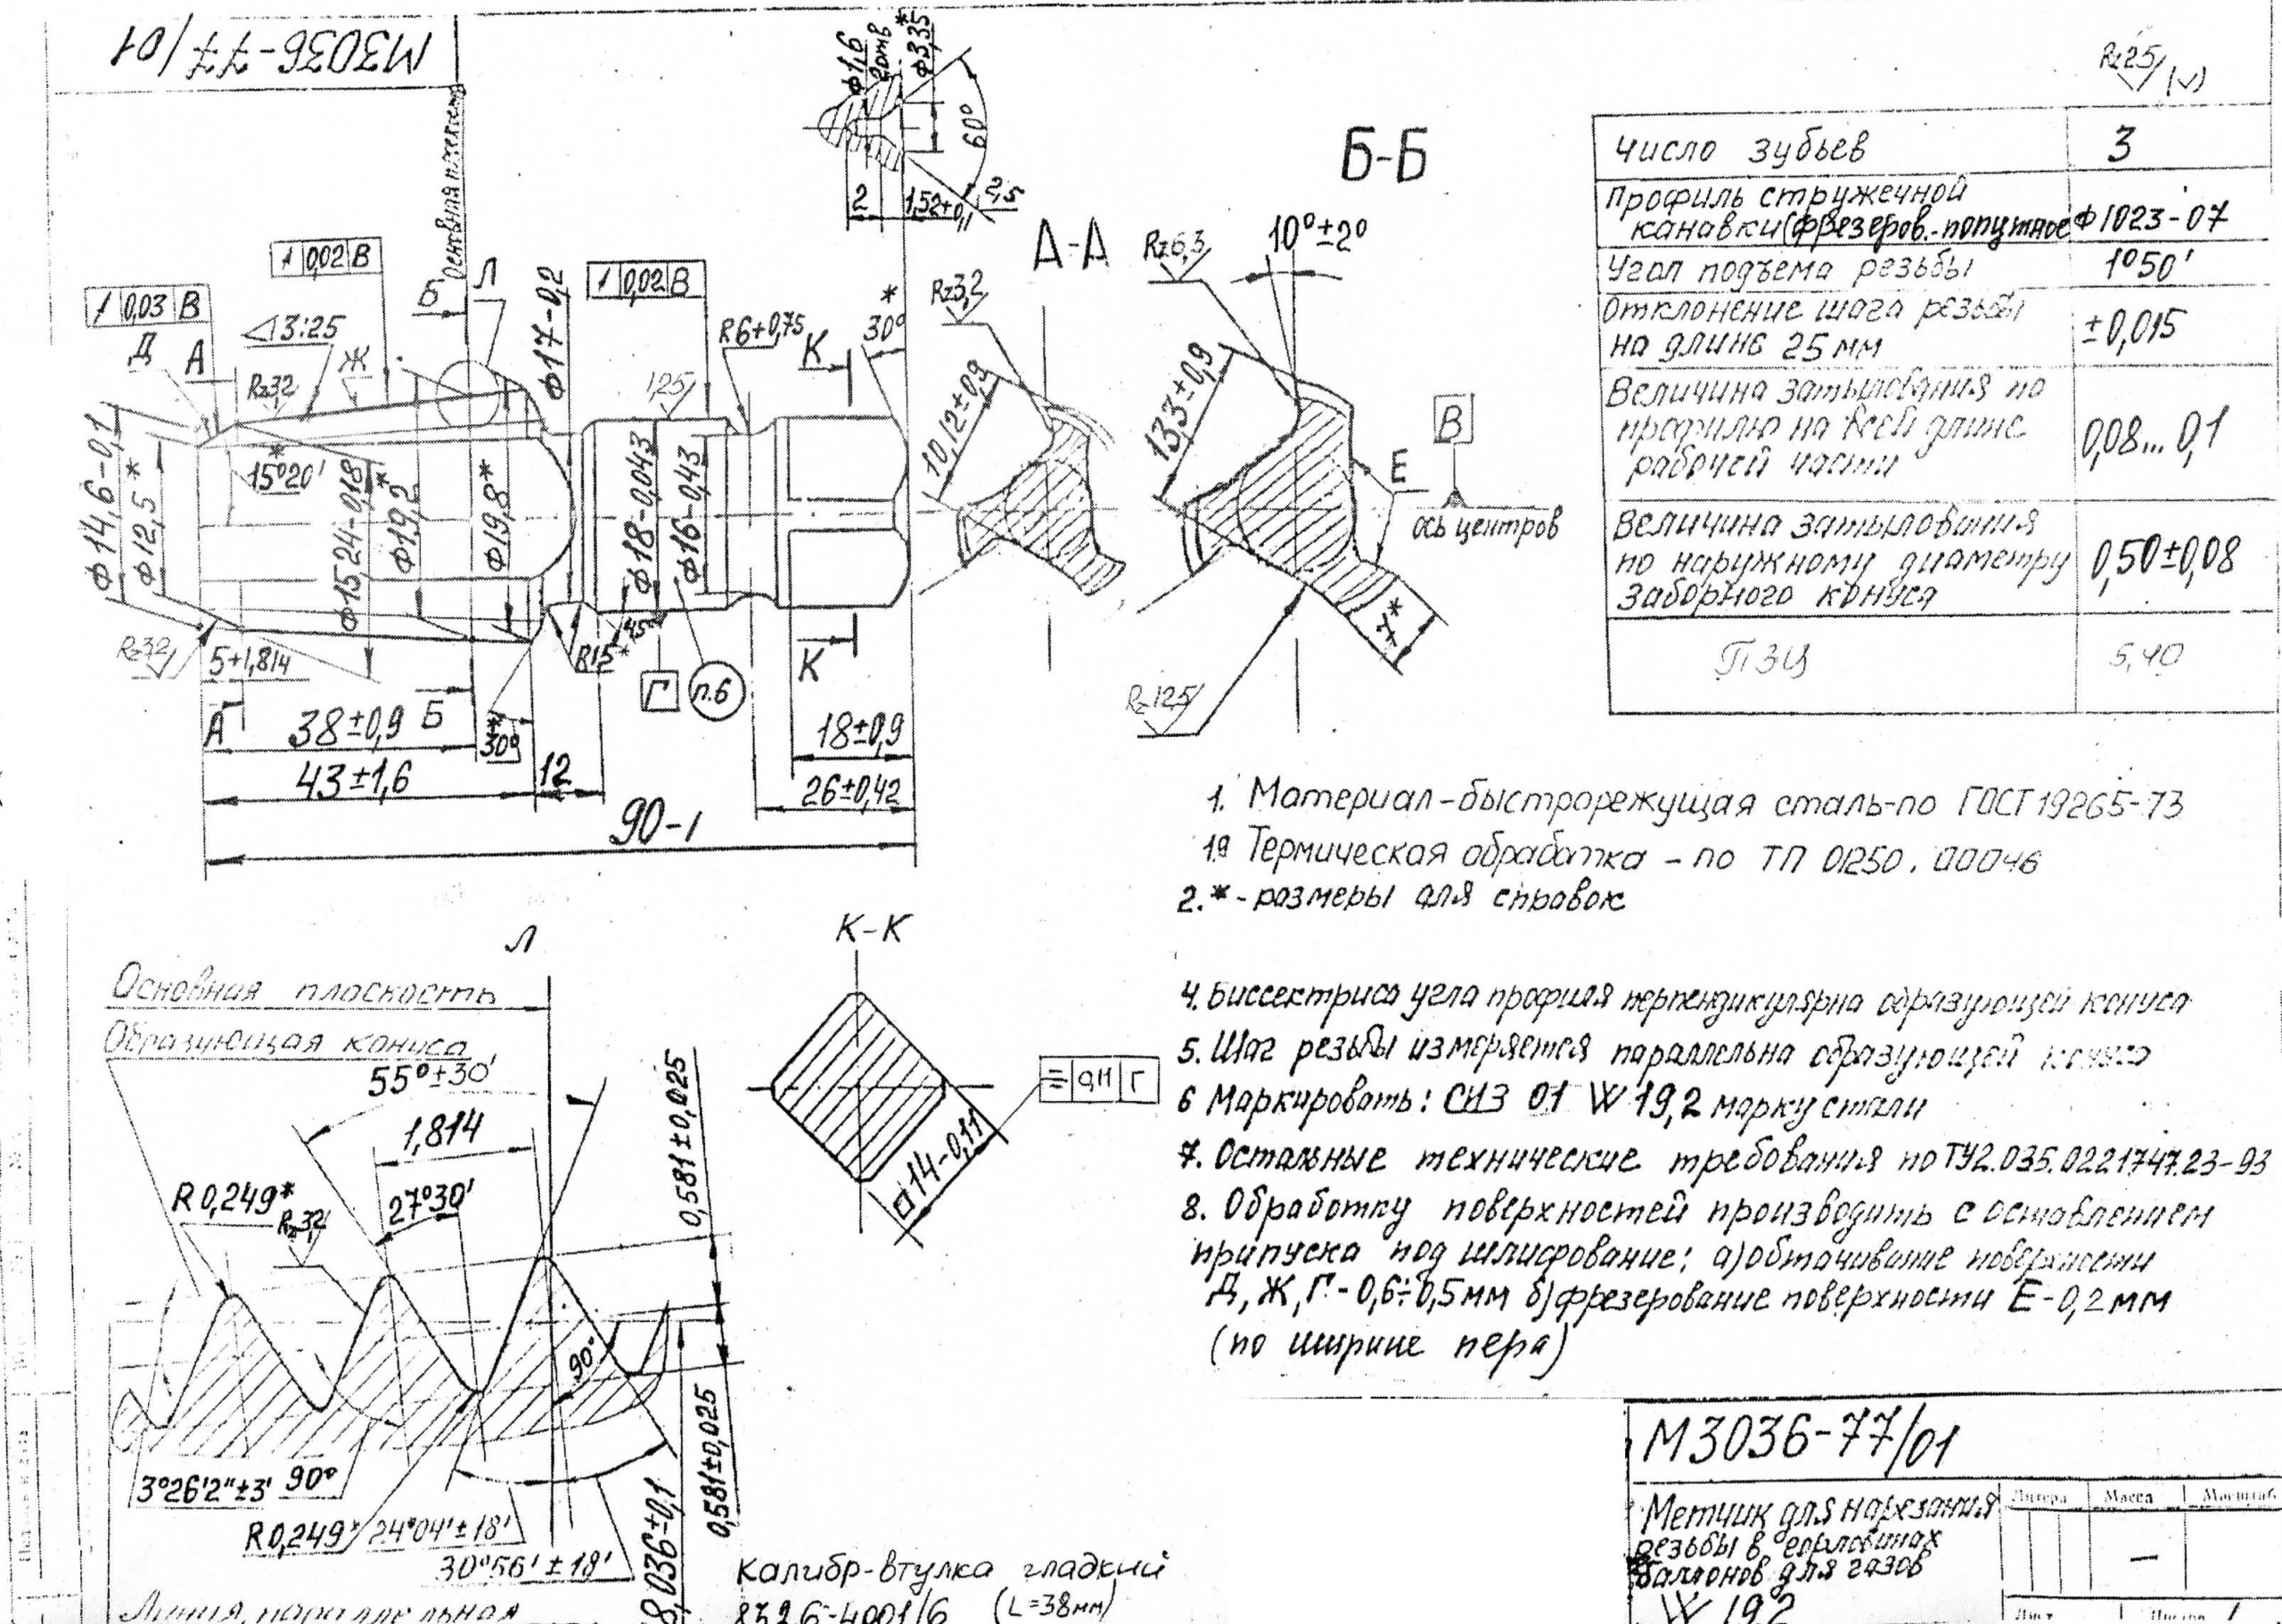 М3036-77/01
Основная плоскость
ф1,6
2отв
*
ф3,35
60°
2
1,52+0,1
2,5
Rz25/(√)
Б-Б
А-А
Число зубьев 3
Профиль стружечной
канавки (фрезеров.-попутное Ф1023-07
Угол подъема резьбы 1°50'
Отклонение шага резьбы
на длине 25 мм ±0,015
Величина затылования по
профилю на всей длине
рабочей части 0,08...0,1
Величина затылования
по наружному диаметру
заборного конуса 0,50±0,08
ПЗЦ 5,40
0,03 В
0,02 В
0,02 В
Д
А
3:25
Rz3,2
Ж
Б
Л
ф17-0,2
R6+0,75
К
30°
*
1,25
ф14,6-0,1
ф12,5*
15°20'
*
ф15,24-0,18
ф19,2*
ф19,8*
ф18-0,043
ф16-0,43
Rz3,2
5+1,814
А
38±0,9
Б
43±1,6
30°
12
R15*
45°
Г
п.6
К
18±0,9
26±0,42
90-1
Rz3,2
10,12±0,9
Rz6,3
10°±2°
13,3±0,9
Е
В
ось центров
7*
Rz12,5
1. Материал-быстрорежущая сталь-по ГОСТ 19265-73
1.а Термическая обработка - по ТП 01250.00046
2.* - размеры для справок
4. Биссектриса угла профиля перпендикулярна образующей конуса
5. Шаг резьбы измеряется параллельна образующей конуса
6 Маркировать: СИЗ 01 W 19,2 марку стали
7. Остальные технические требования по ТУ2.035.0221747.23-93
8. Обработку поверхностей производить с оставлением
припуска под шлифование: а) обтачивание поверхности
Д, Ж, Г - 0,6÷0,5мм б) фрезерование поверхности Е-0,2мм
(по ширине пера)
Л
Основная плоскость
Образующая конуса
55°±30'
1,814
27°30'
R0,249*
Rz3,2
0,581±0,025
0,581±0,025
90°
3°26'2"±3'
90°
R0,249*
24°04'±18'
30°56'±18'
8,036±0,1
Линия, параллельная
К-К
□14-0,11
0,11 Г
Калибр-втулка гладкий
8326-4001/6 (L=38мм)
М3036-77/01
Метчик для нарезания
резьбы в горловинах
баллонов для газов
W 19,2
Литера
Масса
Масштаб
—
Лист